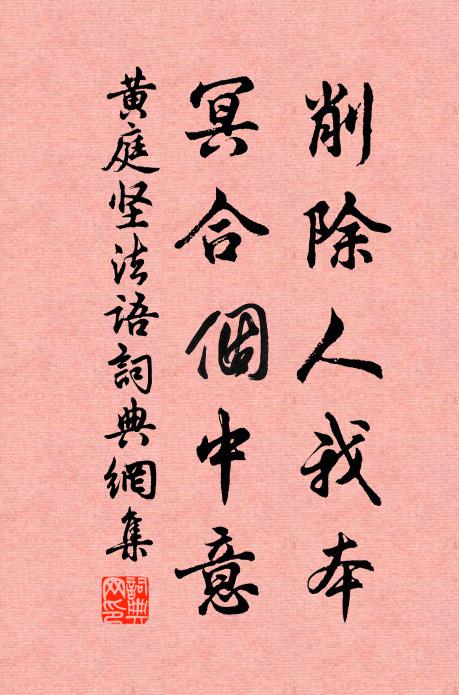 削除人我本
冥合個中意
黄庭坚法语詞典網集
詞典网印